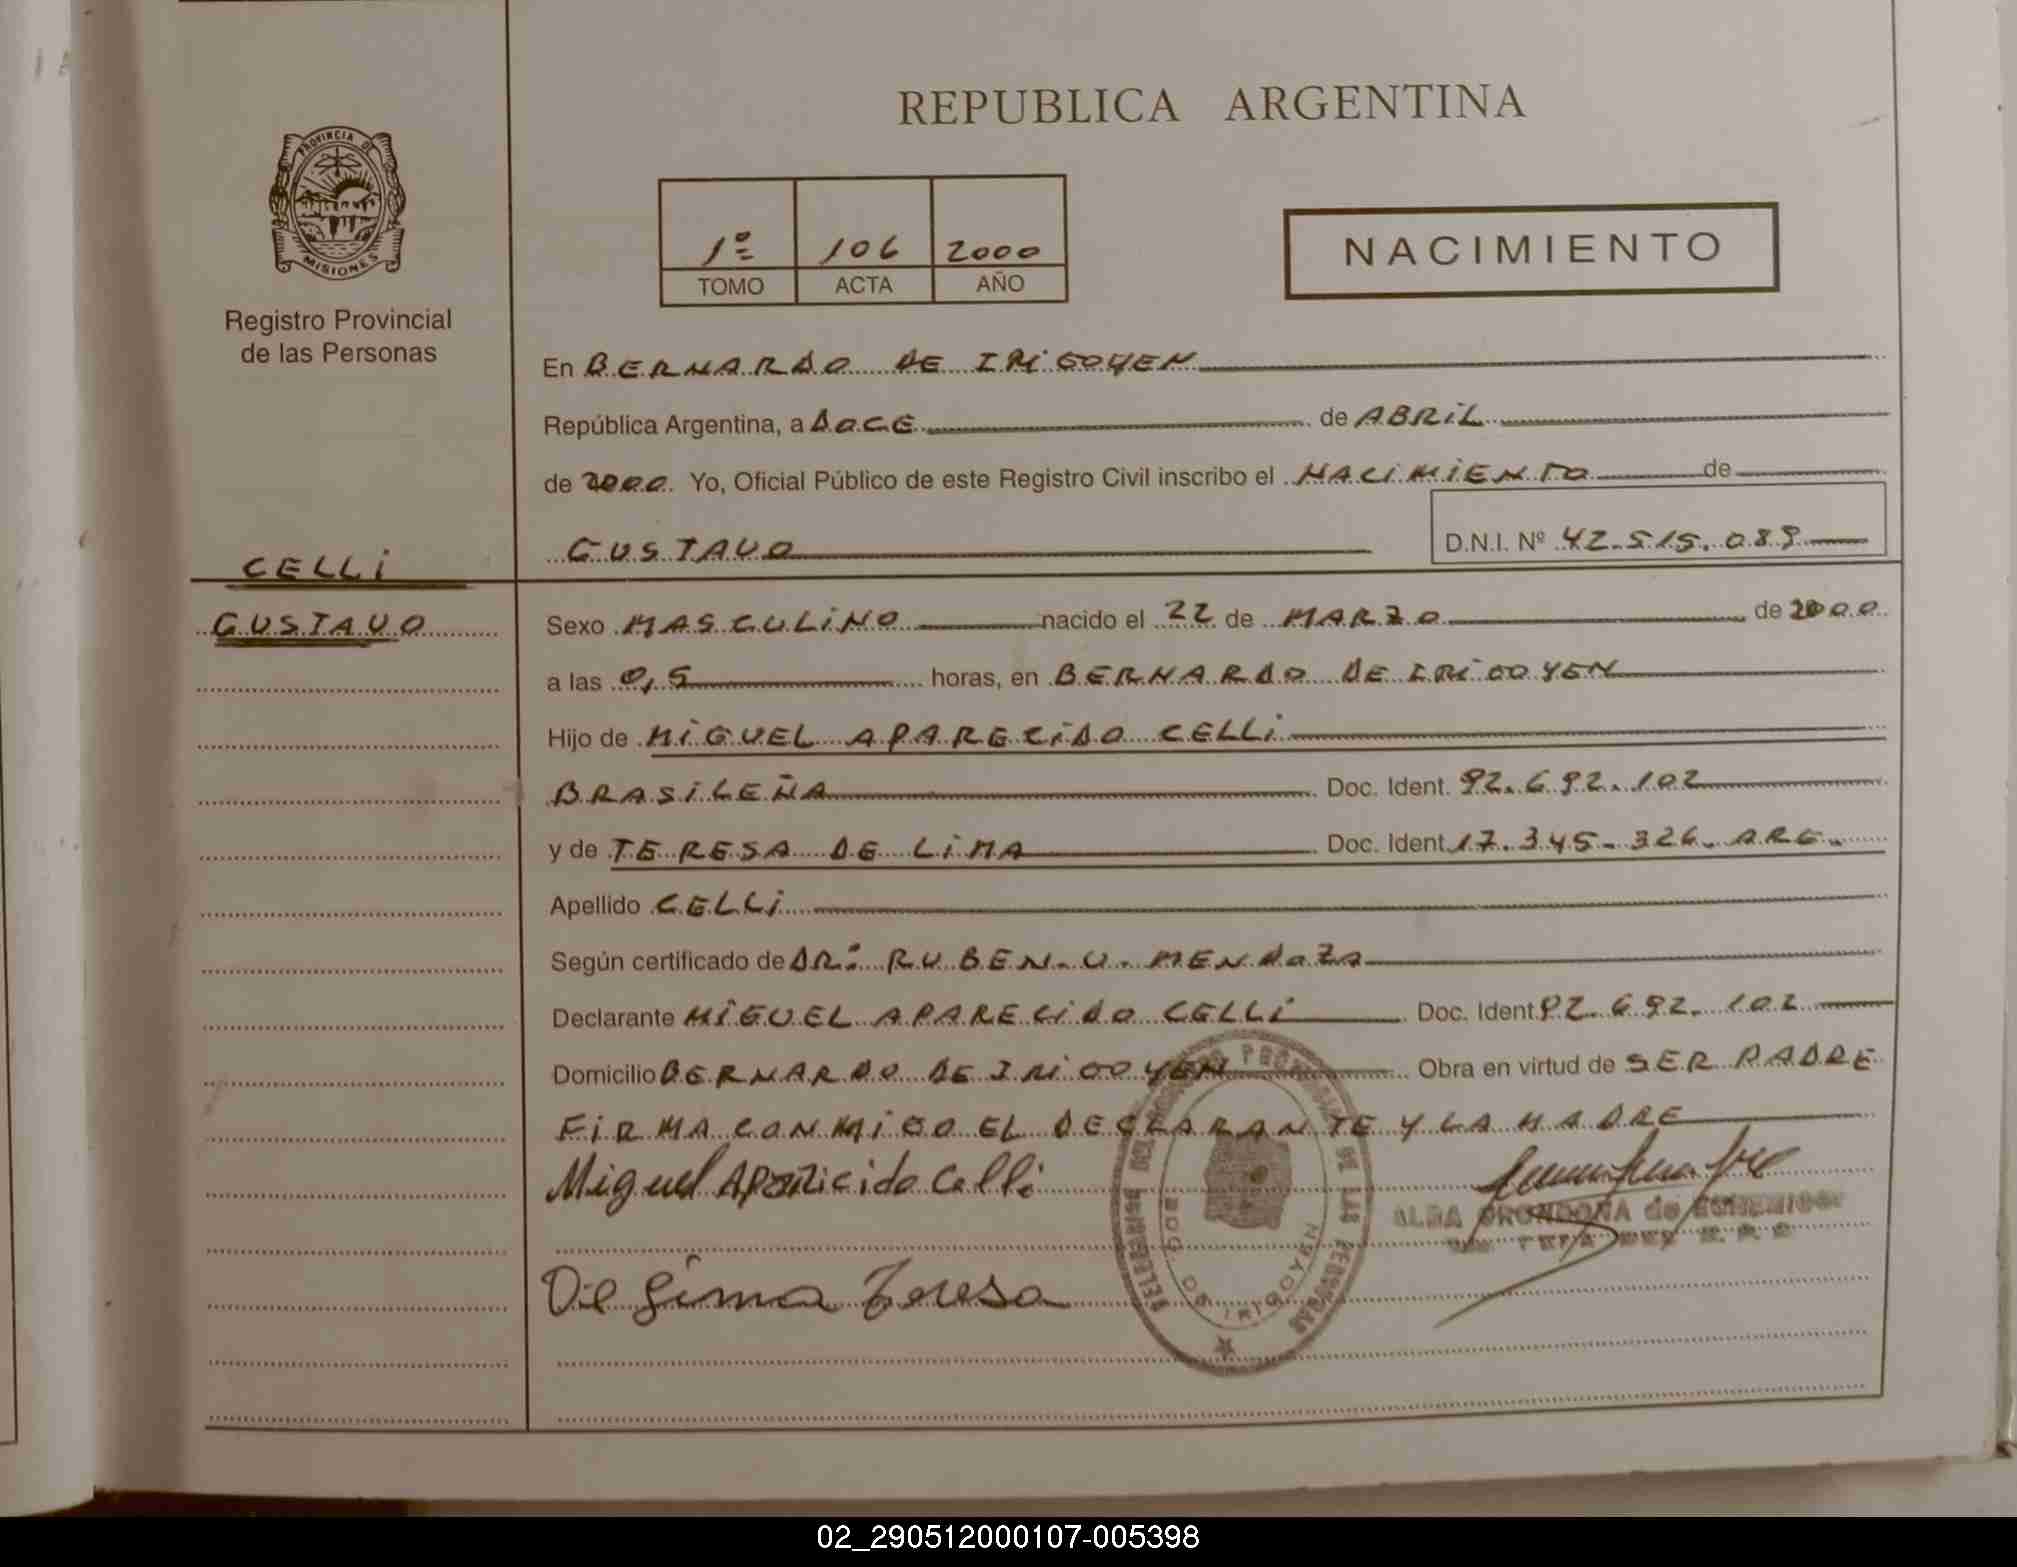 REPUBLICA ARGENTINA
PROVINCIA DE
MISIONES
Registro Provincial
de las Personas
1º 106 2000
TOMO ACTA AÑO
NACIMIENTO
En BERNARDO DE IRIGOYEN
República Argentina, a DOCE de ABRIL
de 2000. Yo, Oficial Público de este Registro Civil inscribo el NACIMIENTO de
GUSTAVO D.N.I. Nº 42.515.089
CELLI
GUSTAVO
Sexo MASCULINO nacido el 22 de MARZO de 2000
a las 0,5 horas, en BERNARDO DE IRIGOYEN
Hijo de MIGUEL APARECIDO CELLI
BRASILEÑA Doc. Ident. 92.692.102
y de TERESA DE LIMA Doc. Ident. 17.345.326. ARG.
Apellido CELLI
Según certificado de DR: RUBEN. U. MENDOZA
Declarante MIGUEL APARECIDO CELLI Doc. Ident. 92.692.102
Domicilio BERNARDO DE IRIGOYEN Obra en virtud de SER PADRE
FIRMA CONMIGO EL DECLARANTE Y LA MADRE
Miguel Aparicido Celli
DE LAS PERSONAS
BDO. DE IRIGOYEN
ALBA de
De Lima Teresa
02_290512000107-005398